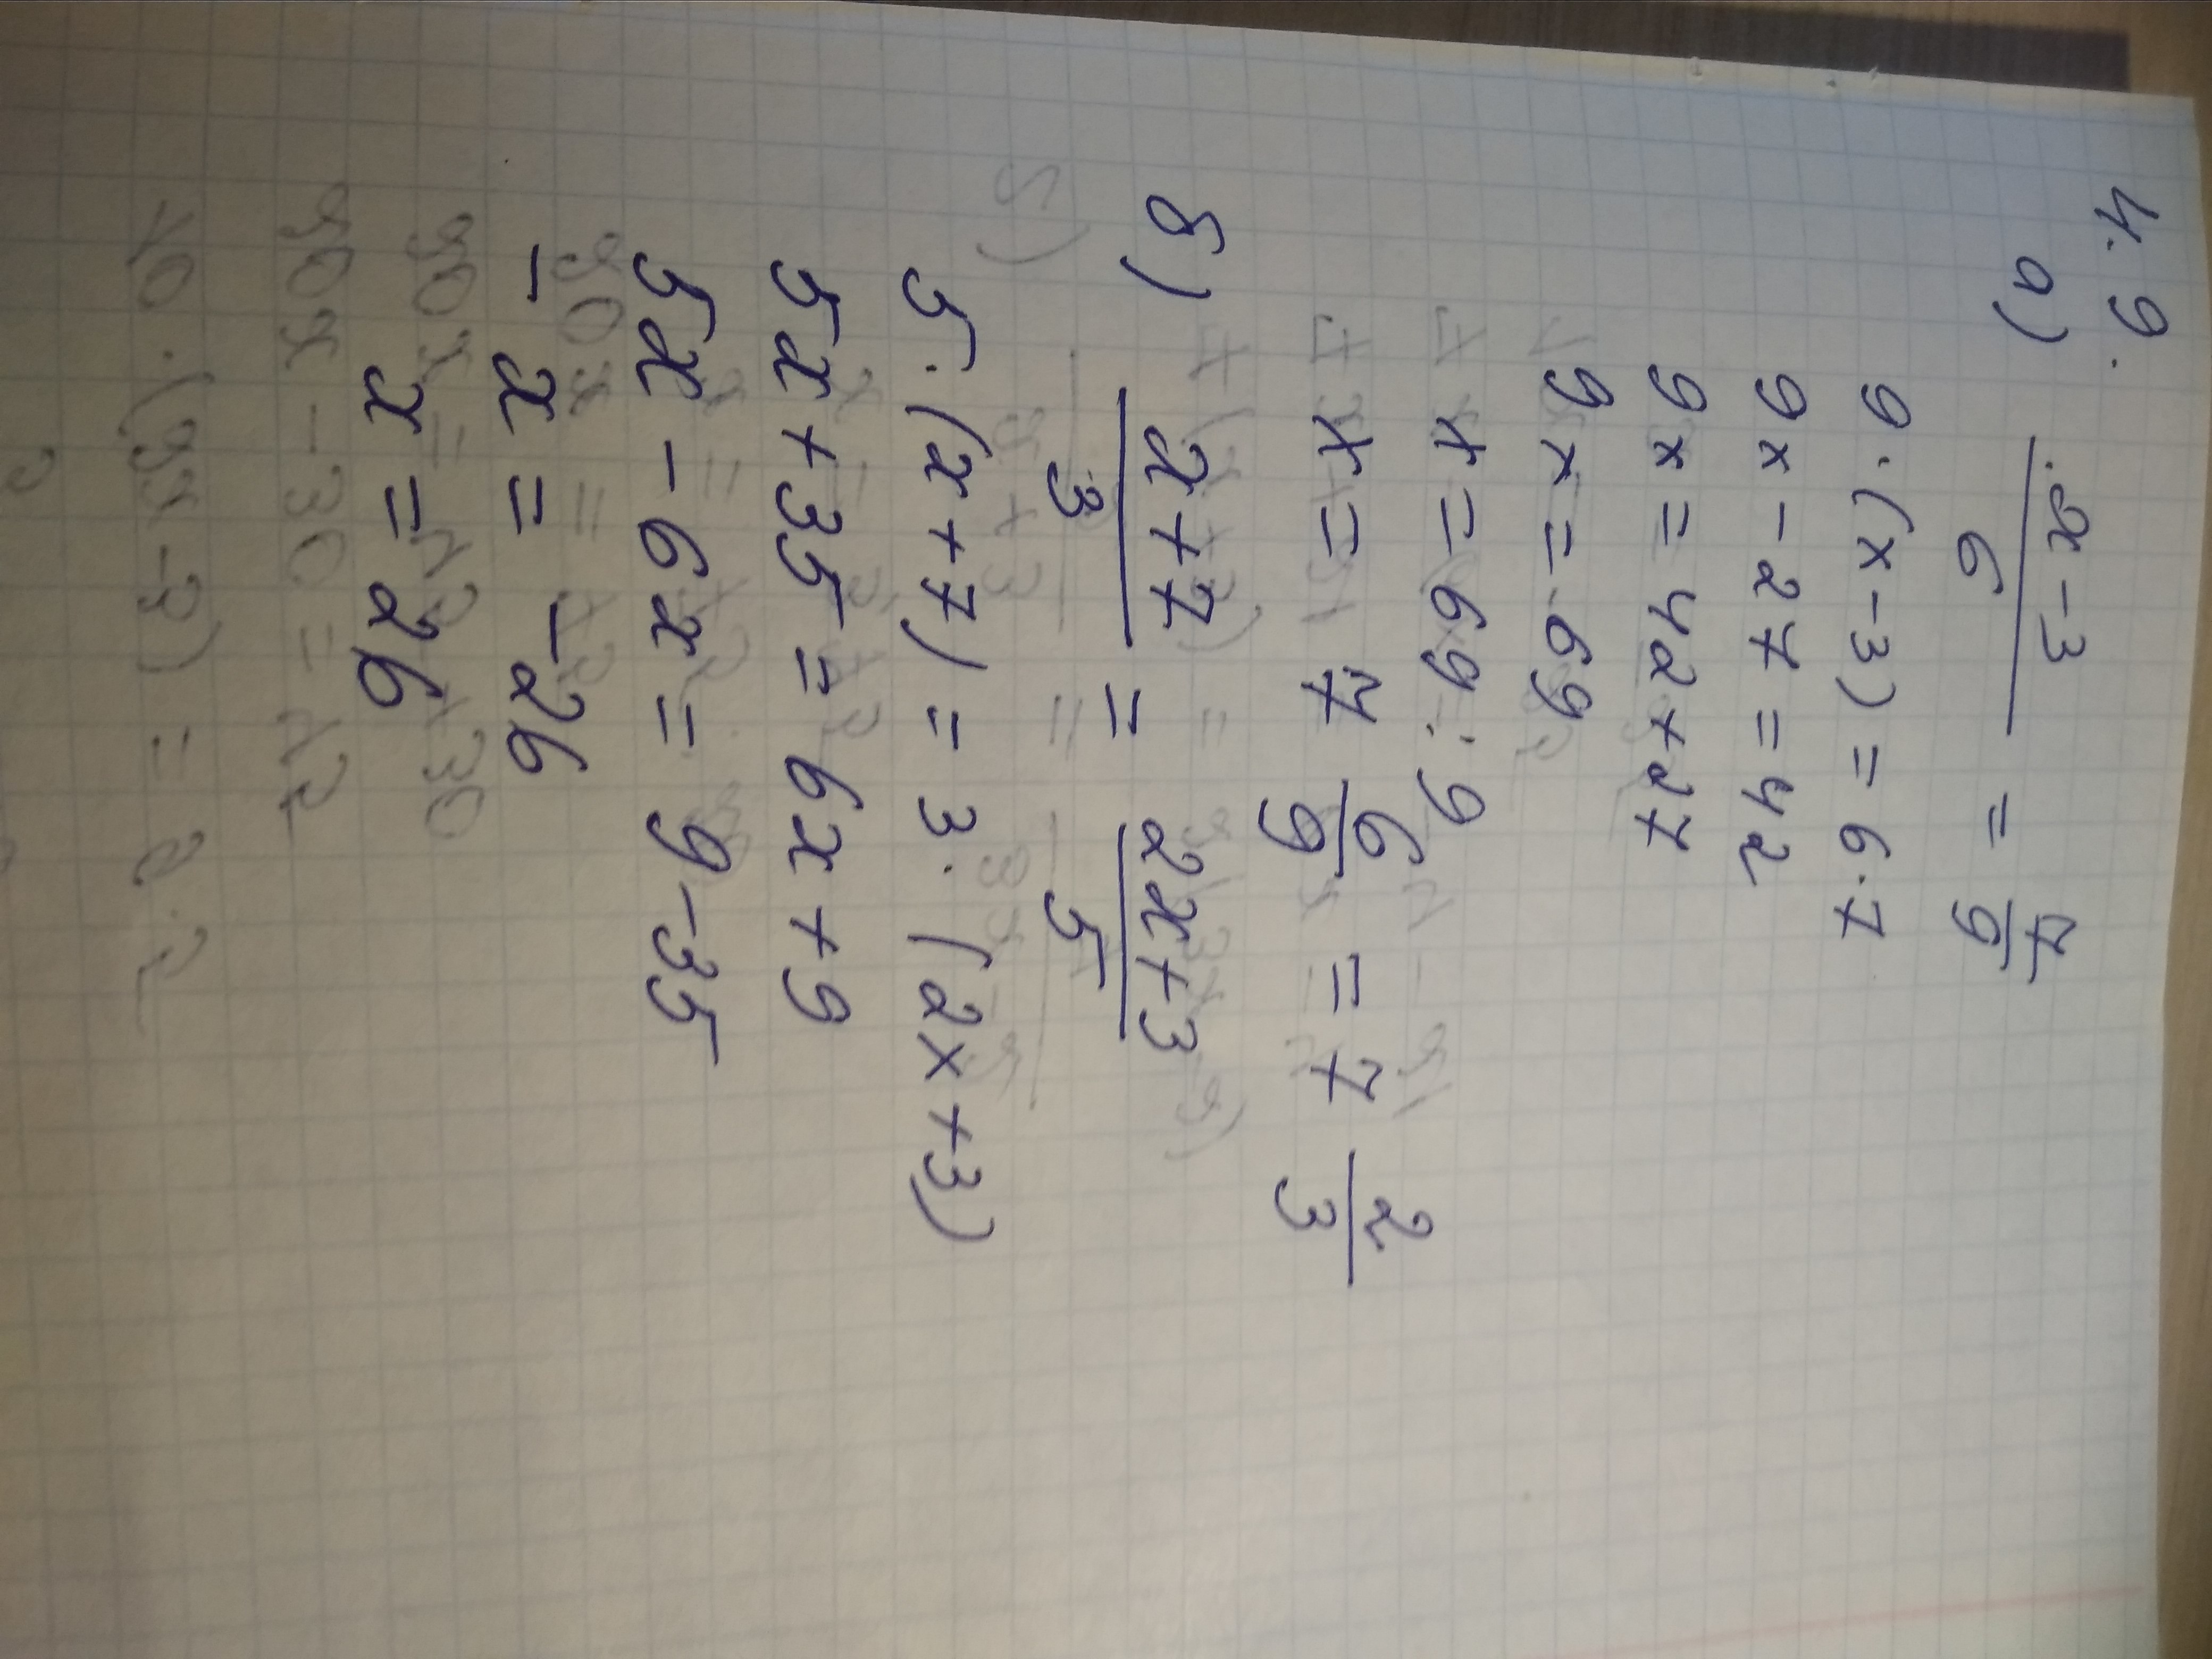 4.9.
а) x-3/6 = 7/9
9·(x-3) = 6·7
9x-27 = 42
9x = 42+27
9x = 69
x = 69:9
x = 7 6/9 = 7 2/3
б) x+7/3 = 2x+3/5
5·(x+7) = 3·(2x+3)
5x+35 = 6x+9
5x-6x = 9-35
-x = -26
x = 26